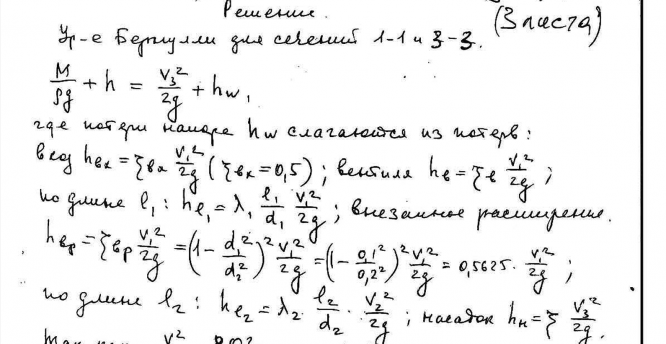 Решение. (3 листа)
Ур-е Бернулли для сечений 1-1 и 3-3.
M/ρg + h = V₃²/2g + hw,
где потери напора hw слагаются из потерь:
вход hвх = ξвх V₁²/2g (ξвх = 0,5); вентиля hв = ξв V₁²/2g;
по длине l₁: hl₁ = λ₁ l₁/d₁ V₁²/2g; внезапное расширение.
hвр = ξвр V₁²/2g = (1 - d₁²/d₂²)² V₁²/2g = (1 - 0,1²/0,2²)² V₁²/2g = 0,5625 · V₁²/2g;
по длине l₂: hl₂ = λ₂ · l₂/d₂ · V₂²/2g; насадок hн = ξ V₃²/2g.